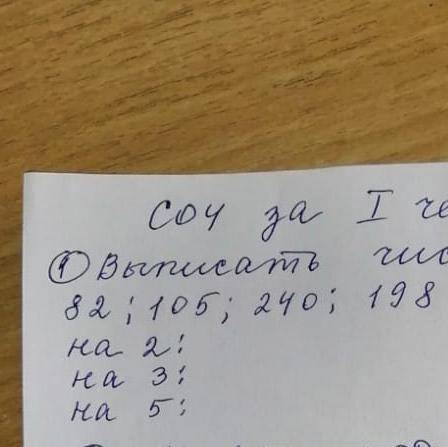 СОЧ за I че
① Выписать чис
82; 105; 240; 198
на 2:
на 3:
на 5: